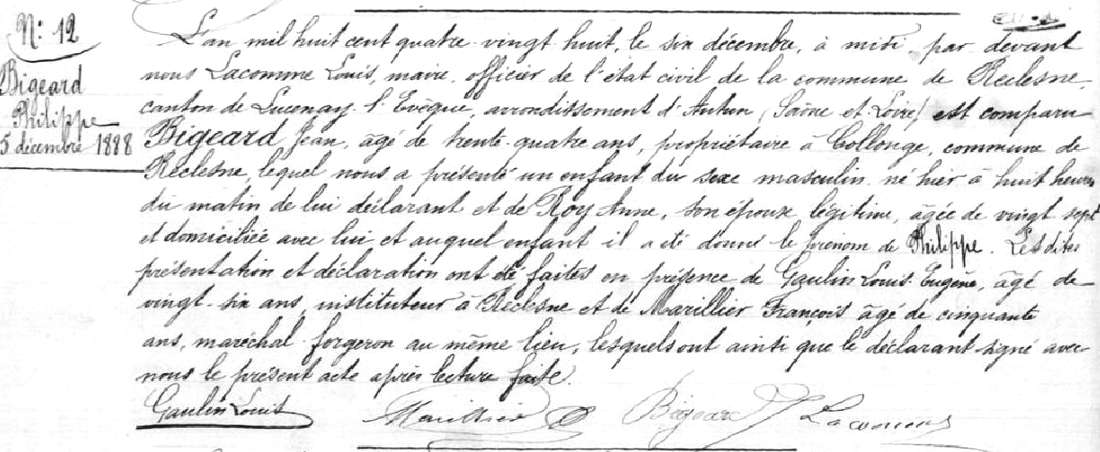 N° 12
Bigeard
Philippe
5 décembre 1888
L'an mil huit cent quatre-vingt huit, le six décembre, à midi par devant
nous Lacomme Louis, maire, officier de l'état civil de la commune de Reclesne,
canton de Lucenay l'Evêque, arrondissement d'Autun (Saône et Loire) est comparu
Bigeard Jean, âgé de trente-quatre ans, propriétaire à Collonge, commune de
Reclesne, lequel nous a présenté un enfant du sexe masculin né hier à huit heures
du matin de lui déclarant et de Roy Anne, son épouse légitime, âgée de vingt sept
et domiciliée avec lui et auquel enfant il a été donné le prénom de Philippe. Lesdites
présentation et déclaration ont été faites en présence de Gaulin Louis Eugène, âgé de
vingt-six ans, instituteur à Reclesne et de Marillier François âgé de cinquante
ans, maréchal forgeron au même lieu, lesquels ont ainsi que le déclarant signé avec
nous le présent acte après lecture faite.
Gaulin Louis Marillier Bigeard Lacomme